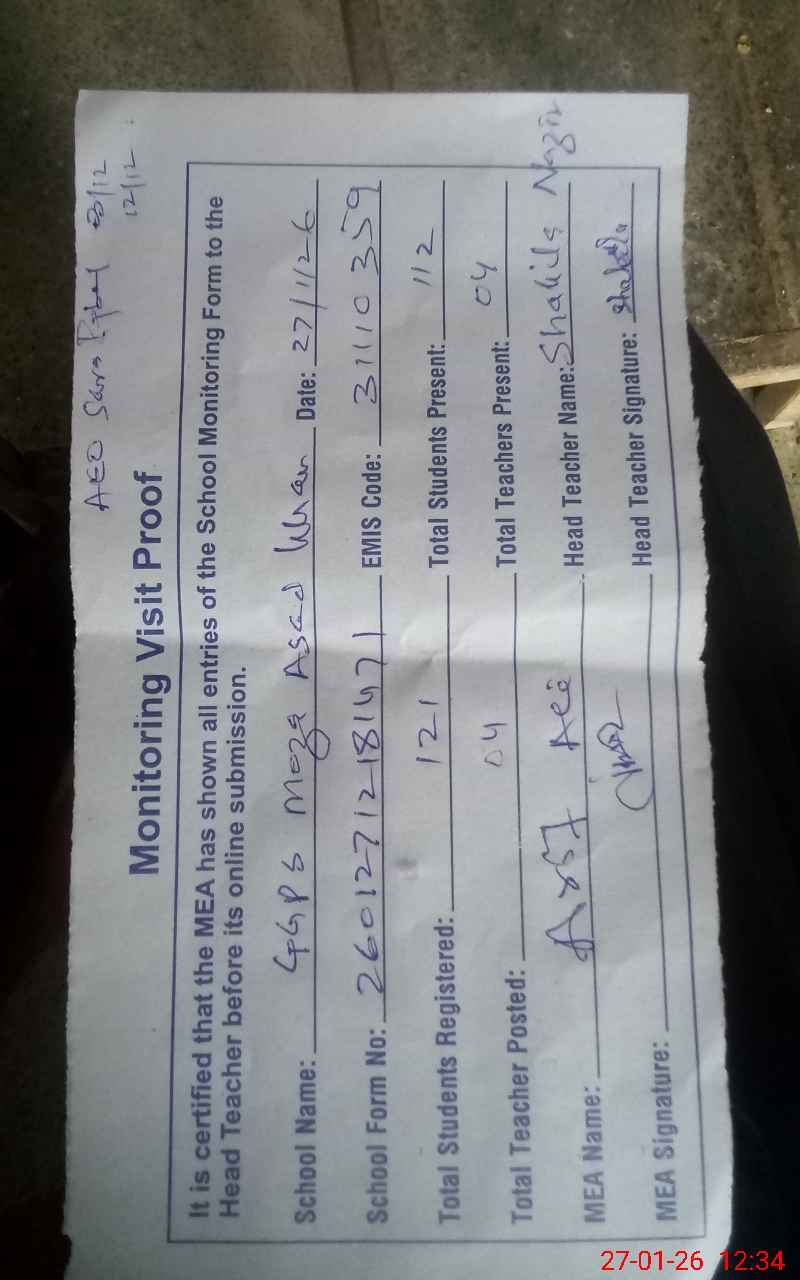 AEO 03/12
12/12
Monitoring Visit Proof
It is certified that the MEA has shown all entries of the School Monitoring Form to the
Head Teacher before its online submission.
School Name: GGPS Moza Asad Khan Date: 27/1/26
School Form No: 26012712181471 EMIS Code: 31110359
Total Students Registered: 121 Total Students Present: 112
Total Teacher Posted: 04 Total Teachers Present: 04
MEA Name: AEO Head Teacher Name: Shakila Nazir
MEA Signature: Head Teacher Signature: Shakila
27-01-26 12:34